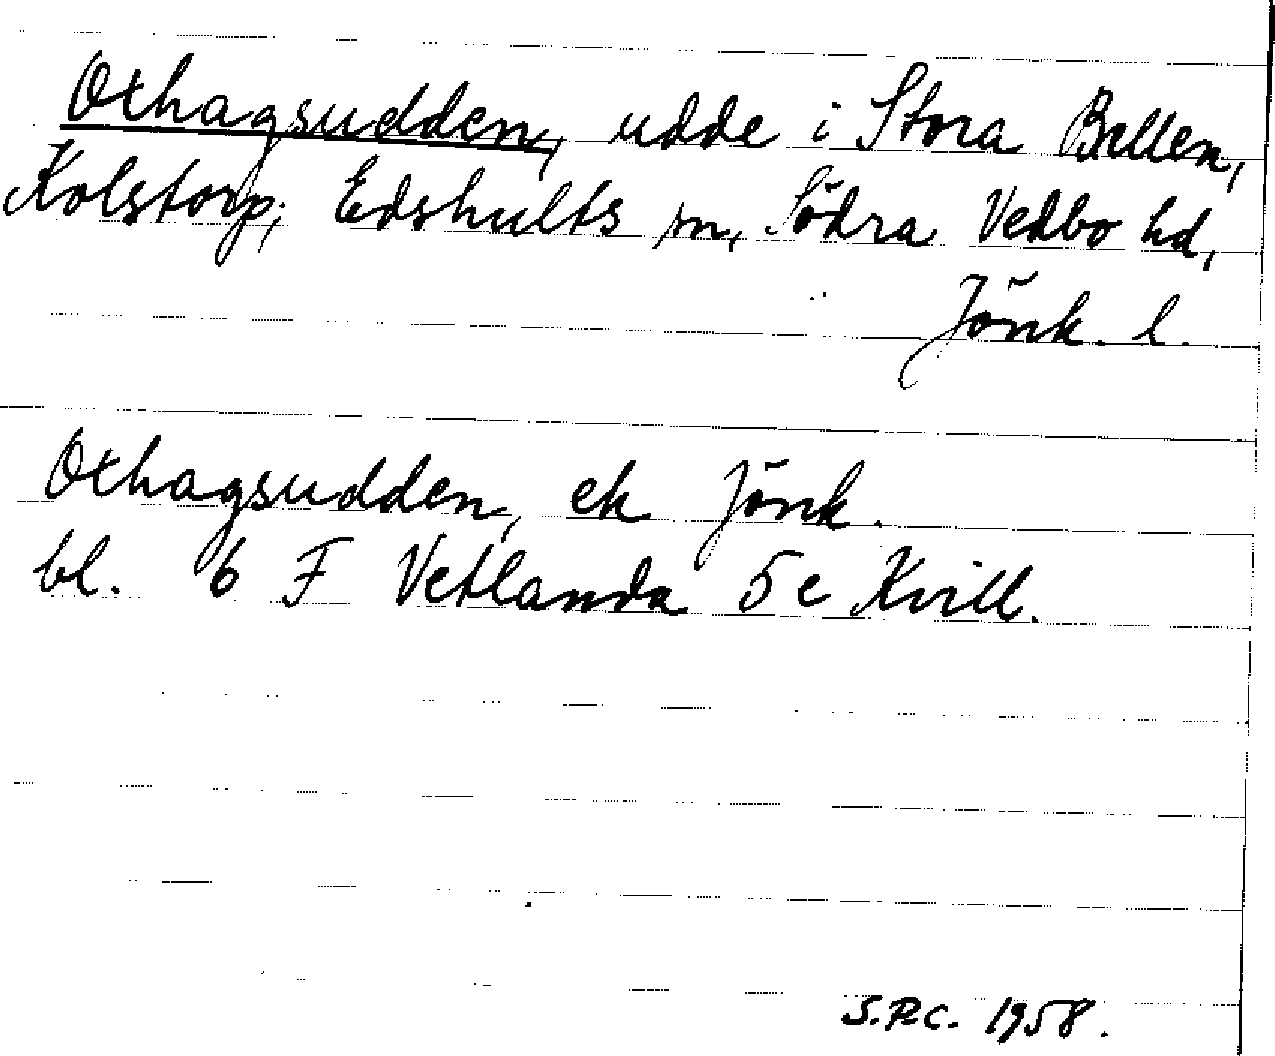 Oxhagsudden, udde i Stora Bellen,
Kolstorp, Edshults sn, Södra Vedbo hd,
Jönk. l.
Oxhagsudden, ek Jönk.
bl. 6 F Vetlanda 5 c Kvill.
S.P.C. 1958.